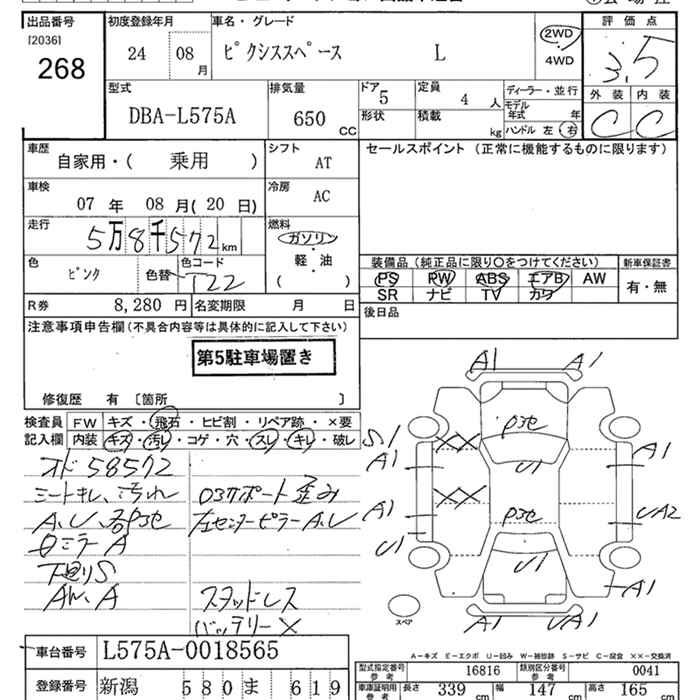 出品番号 初度登録年月 車名・グレード 評価点
[2036] 24 08 月 ピクシススペース L 2WD 4WD 3.5
268
型式 排気量 ドア 5 定員 4 人 ディーラー・並行 外装 内装
DBA-L575A 650 CC 形状 積載 kg モデル年式 年 C C
ハンドル 左 右
車歴 シフト セールスポイント (正常に機能するものに限ります)
自家用・( 乗用 ) AT
車検 冷房
07 年 08 月 ( 20 日) AC
走行 燃料
5万8千572 km ガソリン
色 色コード 軽・油
ピンク 色替 T22 ( )
装備品 (純正品に限り○をつけてください) 新車保証書
PS PW ABS エアB AW 有・無
SR ナビ TV カワ
R券 8,280 円 名変期限 月 日 後日品
注意事項申告欄 (不具合内容等は具体的に記入して下さい)
第5駐車場置き
修復歴 有 〔箇所 〕
検査員 FW キズ・飛石・ヒビ割・リペア跡・×要
記入欄 内装 キズ・汚レ・コゲ・穴・スレ・キレ・破レ
オド 58572
シートキレ、汚れ ロアサポート歪み
A、U、各P3セ 左センターピラーA、U
ロミラーA
下廻りS
AW、A スタッドレス
バッテリー×
A1 A1
P3セ
S1 XX U1 A1
A1
XX
A1 P3セ UA2
U1 U1
A1
A1 UA1
スペア
A-キズ E-エクボ U-凹み W-補修跡 S-サビ C-腐食 XX-交換済
車台番号 L575A-0018565
型式指定番号 参考 16816 類別区分番号 参考 0041
登録番号 新潟 580 ま 619
車庫証明用 参考 長さ 339 cm 幅 147 cm 高さ 165 cm